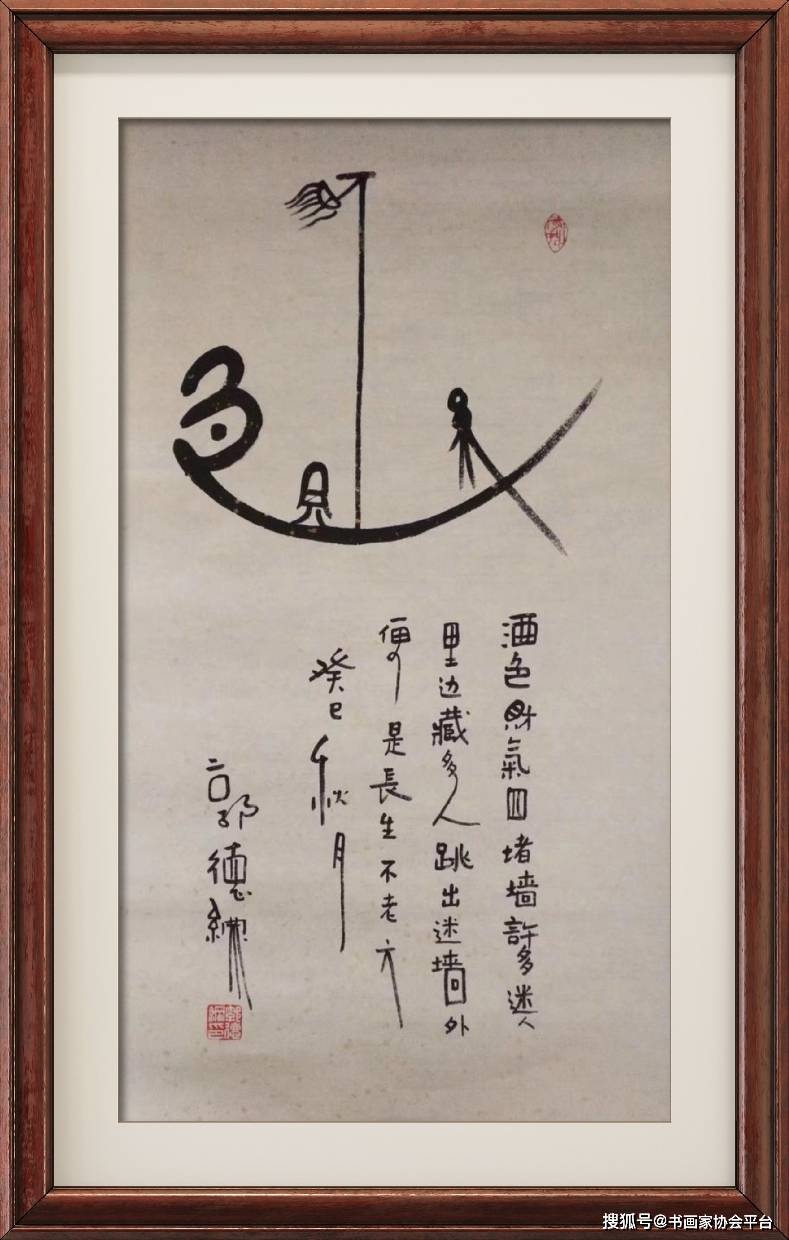 酒色財氣四堵墙許多迷人
里边藏多人跳出迷墙外
便是長生不老方
癸巳秋月
郭德綱
搜狐号@书画家协会平台